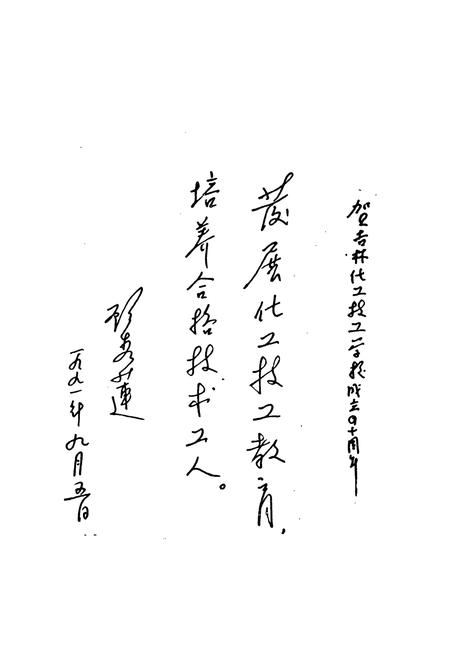 贺吉林化工技工学校成立四十周年
发展化工技工教育，
培养合格技术工人。
顾秀莲
一九九一年九月五日